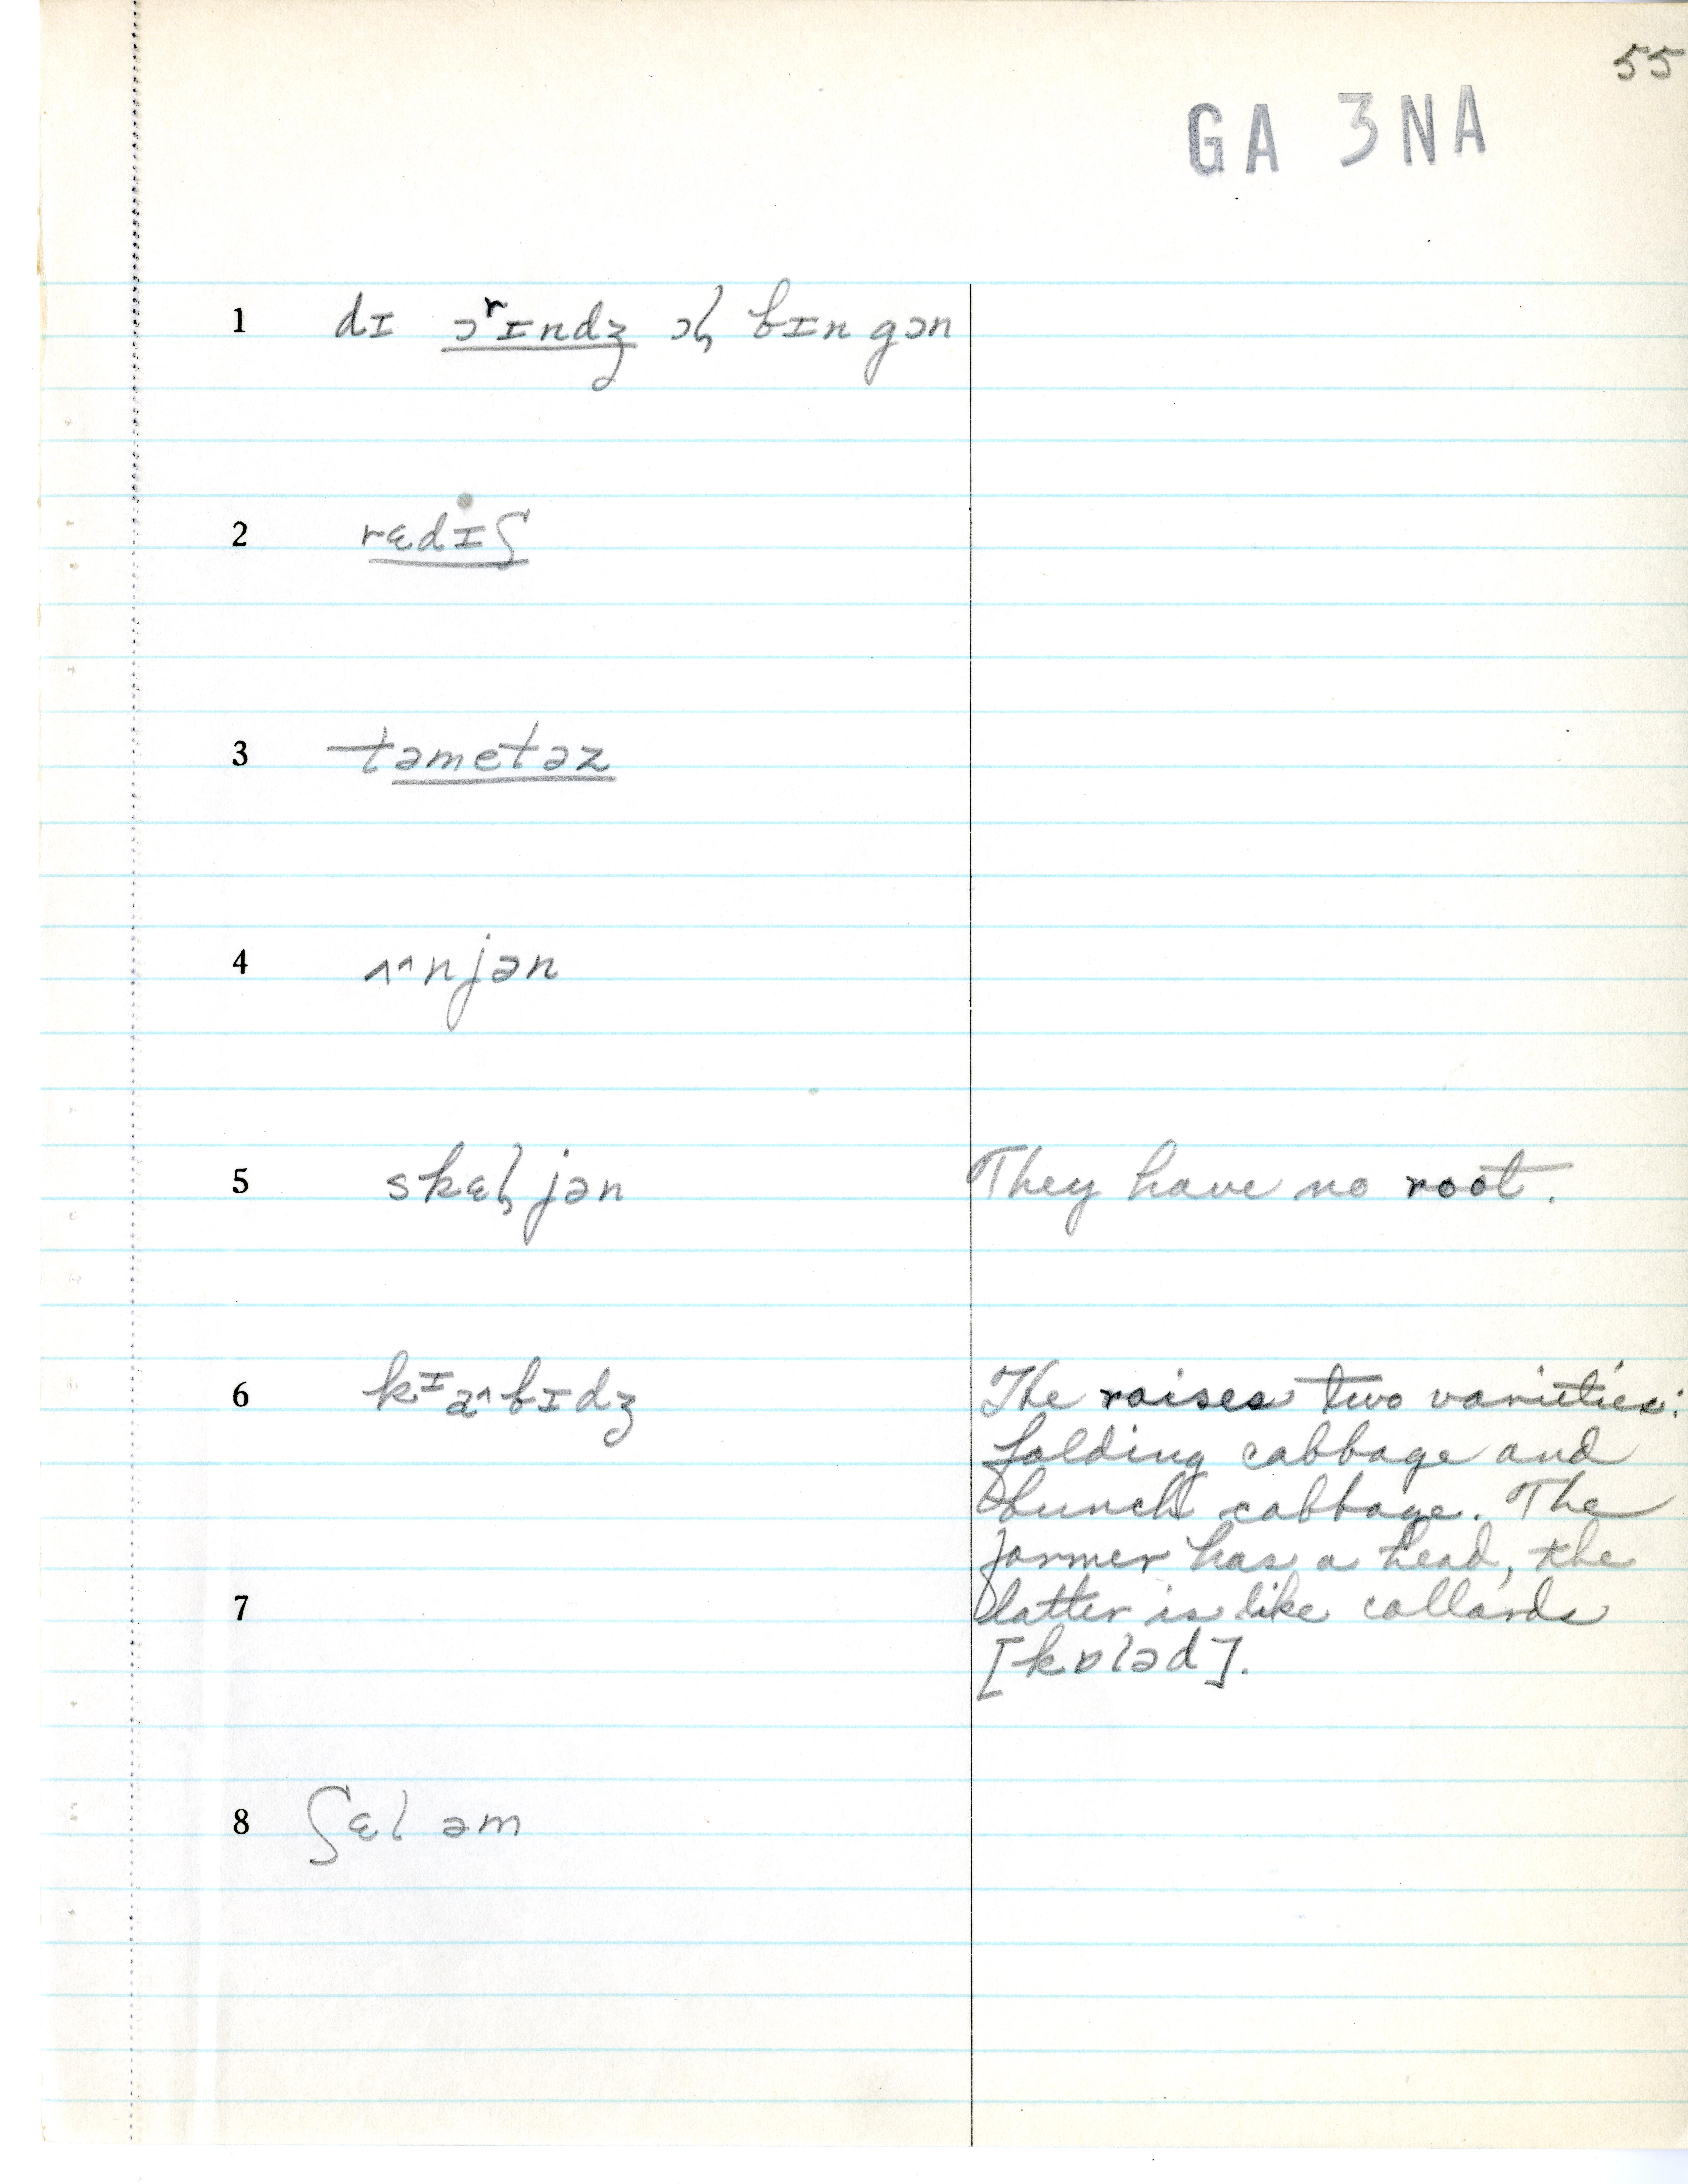 55
GA 3NA
1 dɪ ɔʳɪndʒ ɔɫ bɪn gɔn
2 rɛdɪʃ
3 təmetəz
4 ʌ˄njən
5 skɛɫjən They have no root.
6 kᶦa˄bɪdʒ The raises two varieties:
folding cabbage and
bunch cabbage. The
former has a head, the
7 latter is like collards
[kɒləd].
8 ʃɛl əm